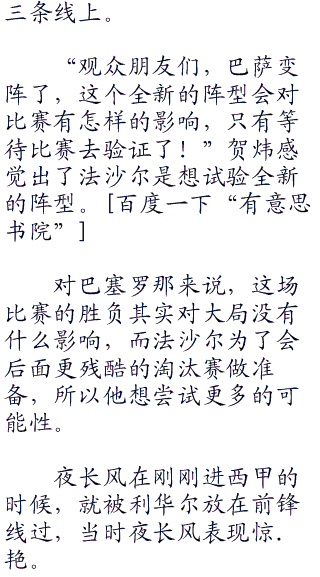 三条线上。
“观众朋友们，巴萨变
阵了，这个全新的阵型会对
比赛有怎样的影响，只有等
待比赛去验证了！”贺炜感
觉出了法沙尔是想试验全新
的阵型。[百度一下“有意思
书院”]
对巴塞罗那来说，这场
比赛的胜负其实对大局没有
什么影响，而法沙尔为了会
后面更残酷的淘汰赛做准
备，所以他想尝试更多的可
能性。
夜长风在刚刚进西甲的
时候，就被利华尔放在前锋
线过，当时夜长风表现惊.
艳。